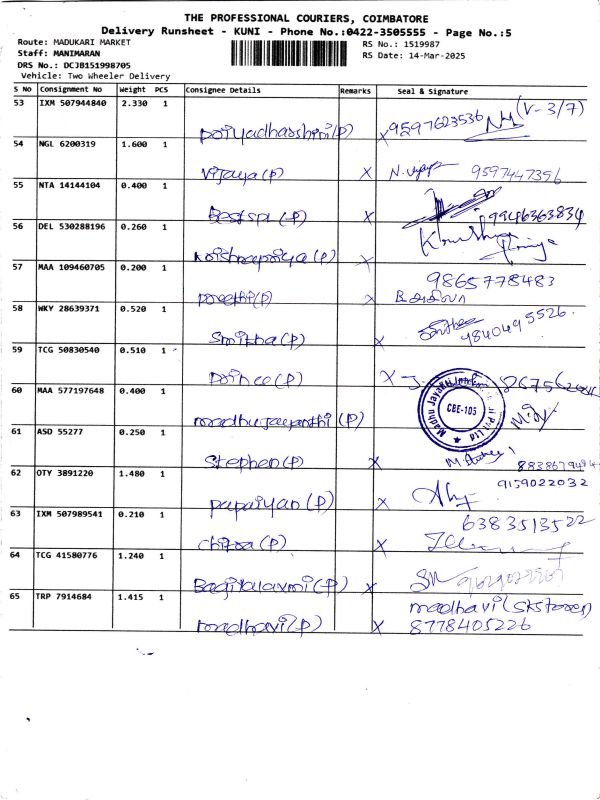 THE PROFESSIONAL COURIERS, COIMBATORE
Delivery Runsheet - KUNI - Phone No.:0422-3505555 - Page No.:5
Route: MADUKARI MARKET RS No.: 1519987
Staff: MANIMARAN RS Date: 14-Mar-2025
DRS No.: DCJB151998705
Vehicle: Two Wheeler Delivery
S No Consignment No Weight PCS Consignee Details Remarks Seal & Signature
53 IXM 507944840 2.330 1
(V-3/7)
Poiyadharshini(P) X 9597623536
54 NGL 6200319 1.600 1
Vijaya(P) X N. 9597447356
55 NTA 14144104 0.400 1
Bestspi(P) X 9946363834
56 DEL 530288196 0.260 1
Krishnapriya(P) X Krishna Priya
57 MAA 109460705 0.200 1
9865778483
Preethi(P) X
58 WKY 28639371 0.520 1
Smitha(P) X 9840495526
59 TCG 50830540 0.510 1
Prince(P) X
60 MAA 577197648 0.400 1
Madhu Jayanthi Pvt Ltd
CBE-105
madhujayanthi(P)
61 ASD 55277 0.250 1
Stephen(P) X
62 OTY 3891220 1.480 1
9159022032
papaiyan(P) X
63 IXM 507989541 0.210 1
6383513522
chitra(P) X
64 TCG 41580776 1.240 1
Bagiyalaxmi(P) X
65 TRP 7914684 1.415 1
madhavi(SKS Tower)
madhavi(P) X 8778405226